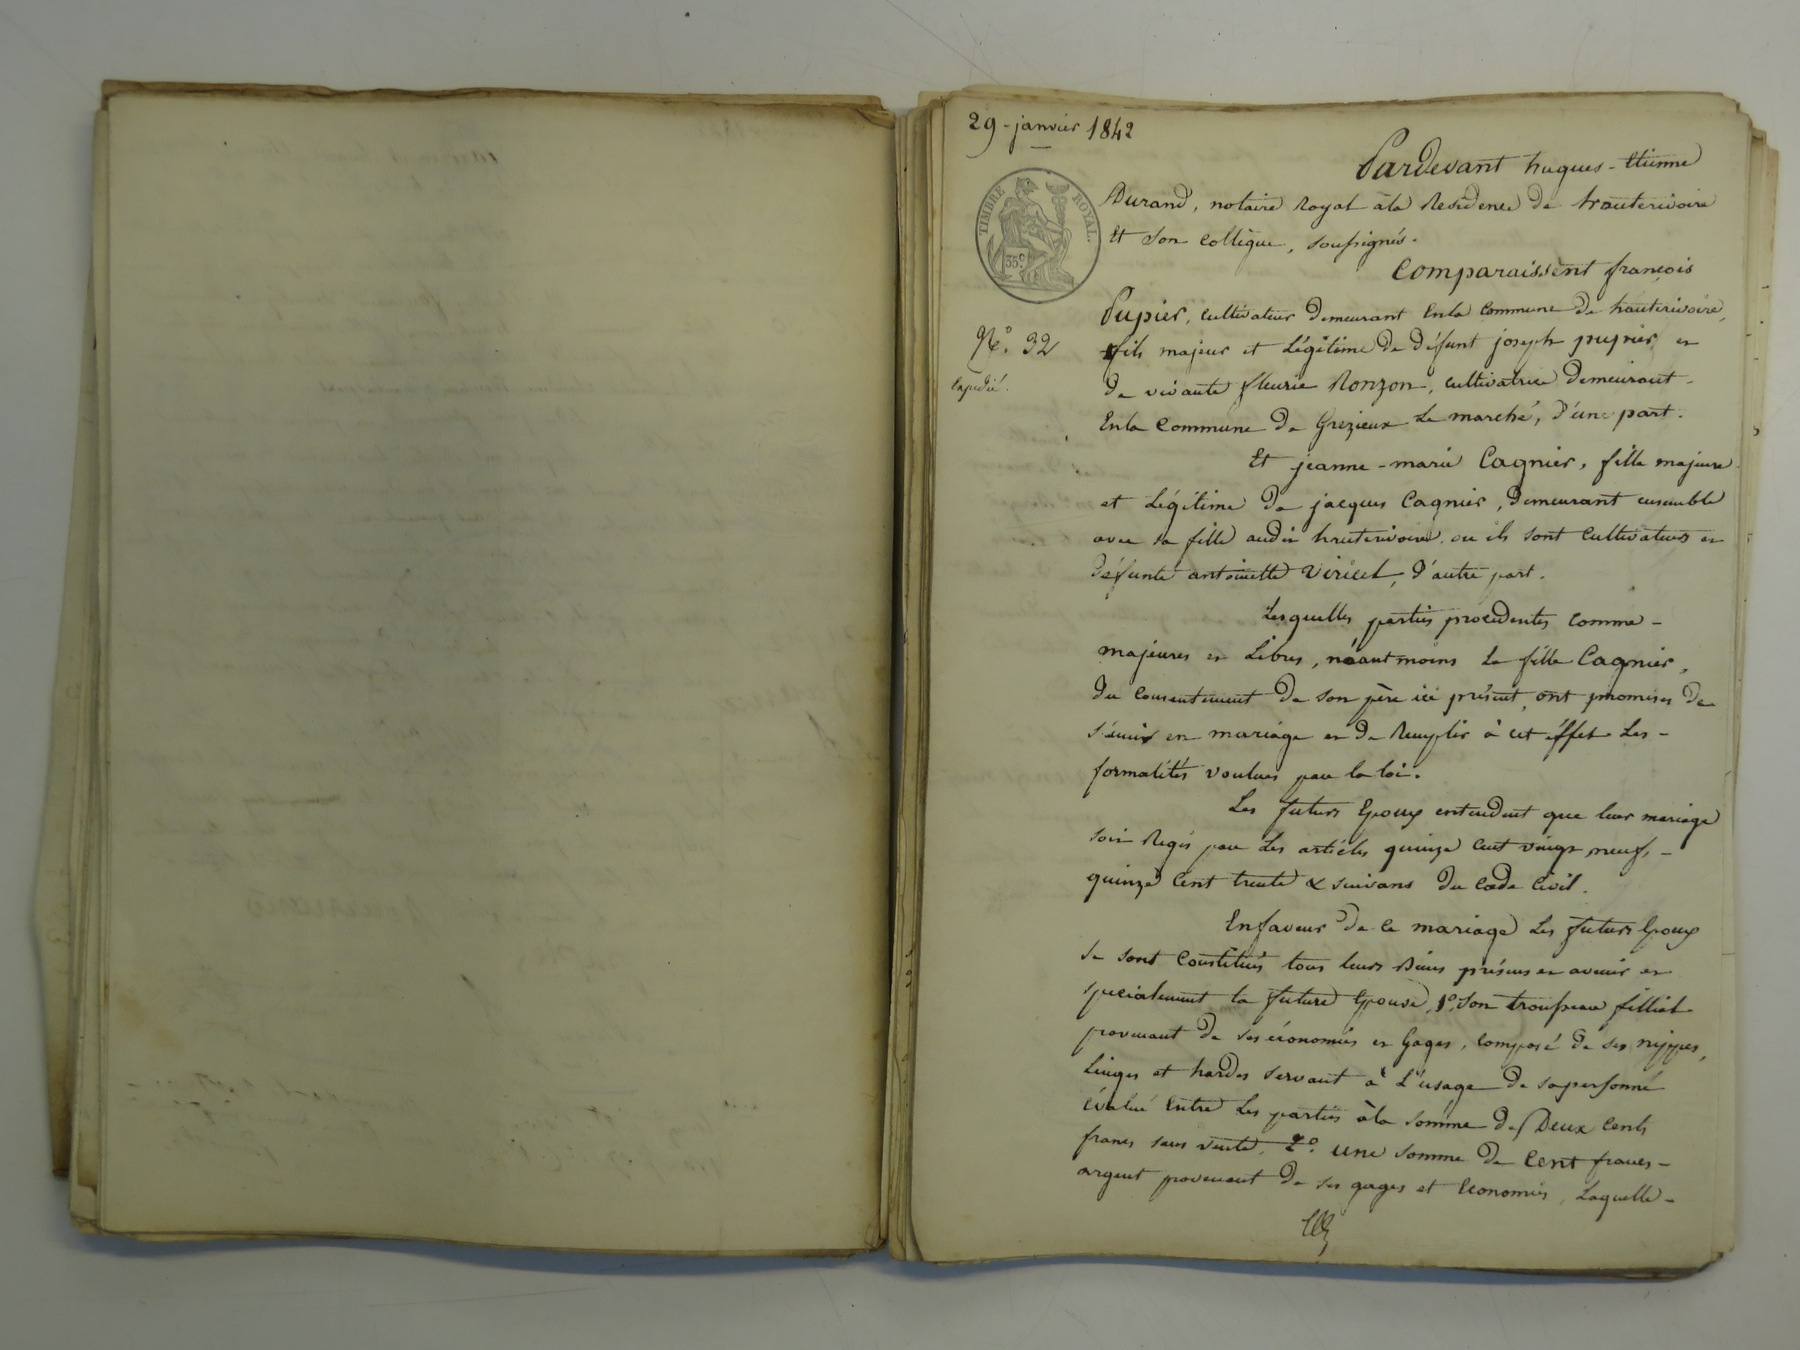 29 - janvier 1842
Pardevant hugues - Etienne
Durand, notaire Royal àla Residence de hauterivoire
TIMBRE ROYAL.
35c
Et son collègue, soussignés.
Comparaissent françois
Pupier, cultivateur demeurant Enla Commune de hauterivoire,
No. 32
fils majeur et Légitime De Défunt joseph pupier et
Expedié.
De vivante fleurie Ronzon, cultivatrice Demeurant -
Enla Commune De Grezieux Le marché, D'une part.
Et jeanne - marie Cagnier, fille majeure
et Légitime De jacques Cagnier, Demeurant ensemble
avec sa fille audit hauterivoire ou ils sont Cultivateurs et
Défunte antoinette Viricel, D'autre part.
Lesquelles parties procedentes comme -
majeures et Libres, néantmoins La fille Cagnier,
Du consentement De son père ici présent, ont promises De
s'unir en mariage et De Remplir à cet éffet Les -
formalités voulues par la loi.
Les futurs Epoux entendent que leur mariage
soit Régis par Les articles quinze Cent vingt neuf, -
quinze Cent trente & suivans Du Code Civil.
Enfaveur De Ce mariage Les futurs Epoux
se sont Constitués tous leurs Biens présens et avenir et
specialement la future Epouse, 1o. Son trousseau filliat
provenant De ses économies et Gages, composé De ses nippes,
Linges et hardes servant à L'usage De sapersonne
évalué Entre Les parties àla somme De Deux Cents
francs sans vente, 2o. une somme De Cent francs -
argent provenant De ses gages et Economies, Laquelle -